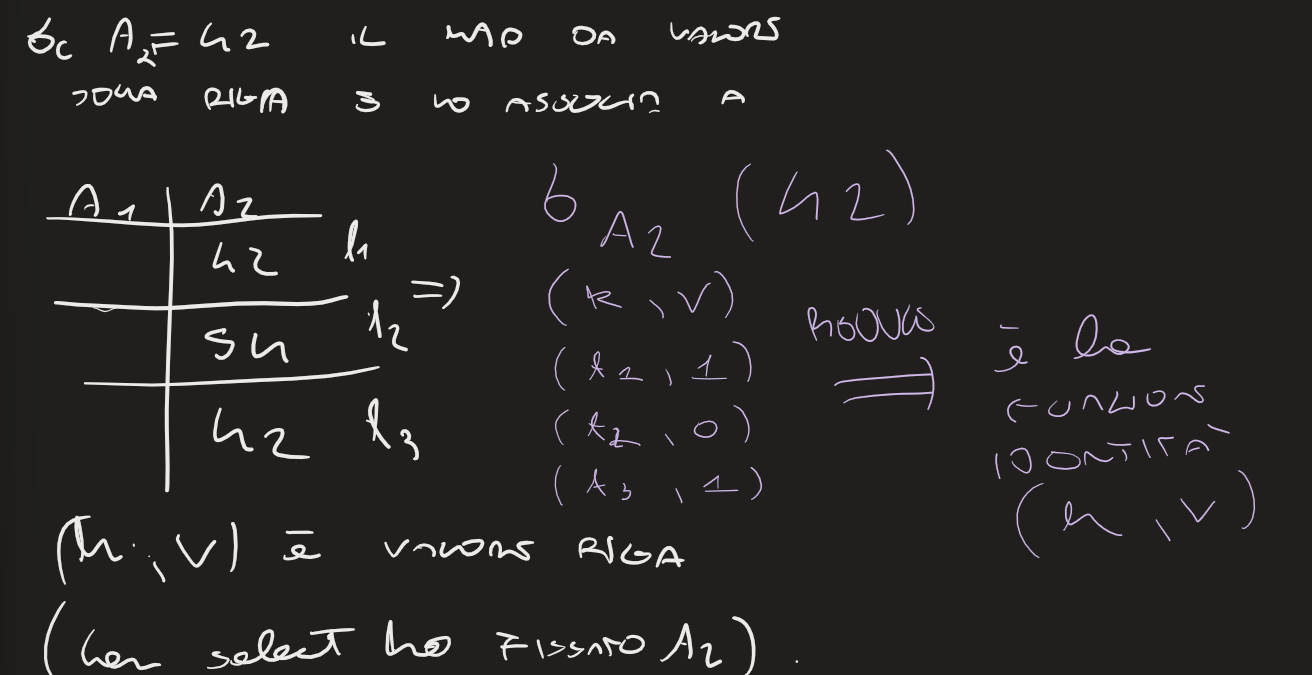 σc A2 = 42 IL MAP DA VALORE
DELLA RIGA E LO ASSOCIA A
A1 A2
42 t1
54 t2
42 t3
=>
σ A2 (42)
(k, V)
(t1, 1)
(t2, 0)
(t3, 1)
REDUCE
è la
FUNZIONE
IDENTITÀ
(k, V)
(k, V) è VALORE RIGA
(con select ho FISSATO A2).